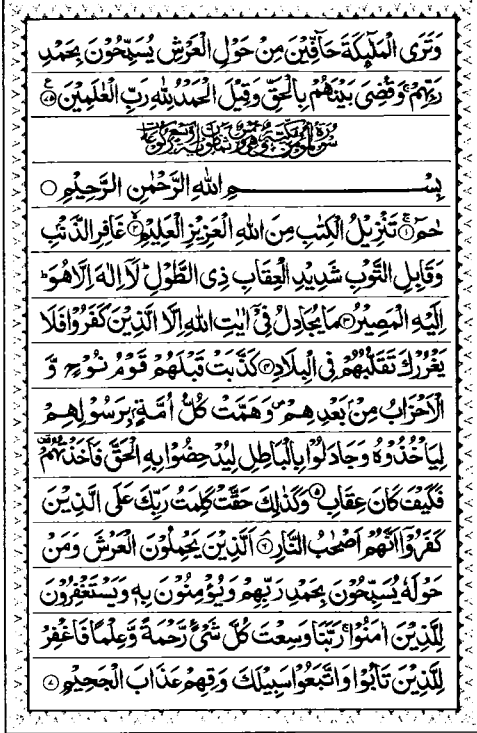 وَتَرَى الْمَلٰٓئِكَةَ حَآفِّیْنَ مِنْ حَوْلِ الْعَرْشِ یُسَبِّحُوْنَ بِحَمْدِ
رَبِّهِمْ ۚ وَقُضِیَ بَیْنَهُمْ بِالْحَقِّ وَقِیْلَ الْحَمْدُ لِلّٰهِ رَبِّ الْعٰلَمِیْنَ ﴿۷۵﴾
بِسْمِ اللّٰهِ الرَّحْمٰنِ الرَّحِیْمِ
حٰمٓ ﴿۱﴾ تَنْزِیْلُ الْكِتٰبِ مِنَ اللّٰهِ الْعَزِیْزِ الْعَلِیْمِ ﴿۲﴾ غَافِرِ الذَّنْۢبِ
وَقَابِلِ التَّوْبِ شَدِیْدِ الْعِقَابِ ذِی الطَّوْلِ ؕ لَاۤ اِلٰهَ اِلَّا هُوَ ؕ
اِلَیْهِ الْمَصِیْرُ ﴿۳﴾ مَا یُجَادِلُ فِیْۤ اٰیٰتِ اللّٰهِ اِلَّا الَّذِیْنَ كَفَرُوْا فَلَا
یَغْرُرْكَ تَقَلُّبُهُمْ فِی الْبِلَادِ ﴿۴﴾ كَذَّبَتْ قَبْلَهُمْ قَوْمُ نُوْحٍ وَّ
الْاَحْزَابُ مِنْۢ بَعْدِهِمْ ۪ وَهَمَّتْ كُلُّ اُمَّةٍۭ بِرَسُوْلِهِمْ
لِیَاْخُذُوْهُ وَجَادَلُوْا بِالْبَاطِلِ لِیُدْحِضُوْا بِهِ الْحَقَّ فَاَخَذْتُهُمْ
فَكَیْفَ كَانَ عِقَابِ ﴿۵﴾ وَكَذٰلِكَ حَقَّتْ كَلِمَتُ رَبِّكَ عَلَی الَّذِیْنَ
كَفَرُوْۤا اَنَّهُمْ اَصْحٰبُ النَّارِ ﴿۶﴾ اَلَّذِیْنَ یَحْمِلُوْنَ الْعَرْشَ وَمَنْ
حَوْلَهٗ یُسَبِّحُوْنَ بِحَمْدِ رَبِّهِمْ وَیُؤْمِنُوْنَ بِهٖ وَیَسْتَغْفِرُوْنَ
لِلَّذِیْنَ اٰمَنُوْا ۚ رَبَّنَا وَسِعْتَ كُلَّ شَیْءٍ رَّحْمَةً وَّعِلْمًا فَاغْفِرْ
لِلَّذِیْنَ تَابُوْا وَاتَّبَعُوْا سَبِیْلَكَ وَقِهِمْ عَذَابَ الْجَحِیْمِ ﴿۷﴾